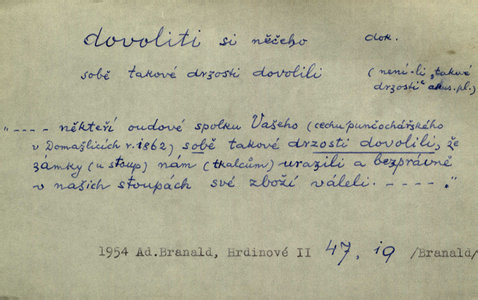 dovoliti si něčeho dok.
sobě takové drzosti dovolili (není-li „takové
drzosti" akus. pl.)
"---- někteří oudové spolku Vašeho (cechu punčochářského
v Domažlicích r. 1862) sobě takové drzosti dovolili, že
zámky (u stoup) nám (tkalcům) urazili a bezprávně
v našich stoupách své zboží váleli. ----."
1954 Ad.Branald, Hrdinové II 47, 19 /Branald/